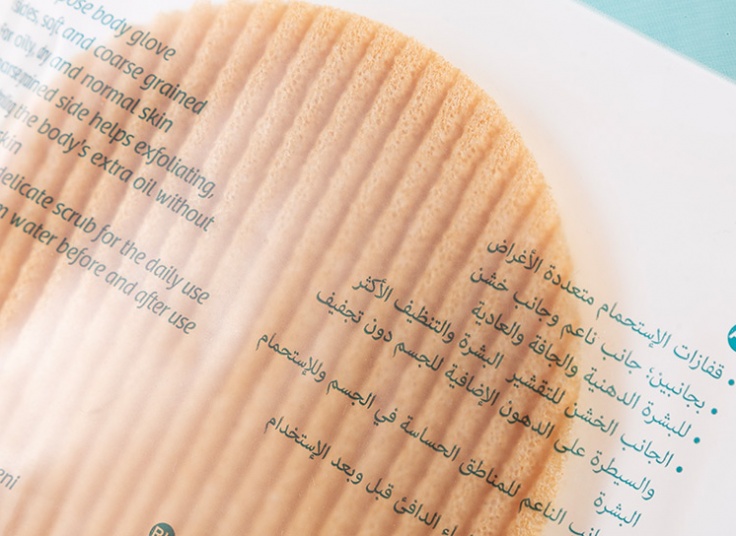 pose body glove
soft and coarse grained
oily, dry and normal skin
side helps exfoliating,
the body's extra oil without
skin
delicate scrub for the daily use
water before and after use
قفازات الإستحمام متعددة الأغراض
بجانبين؛ جانب ناعم وجانب خشن
للبشرة الدهنية والجافة والعادية
الجانب الخشن للتقشير البشرة والتنظيف الأكثر
والسيطرة على الدهون الإضافية للجسم دون تجفيف
البشرة
الناعم للمناطق الحساسة في الجسم وللإستحمام
الدافئ قبل وبعد الإستخدام